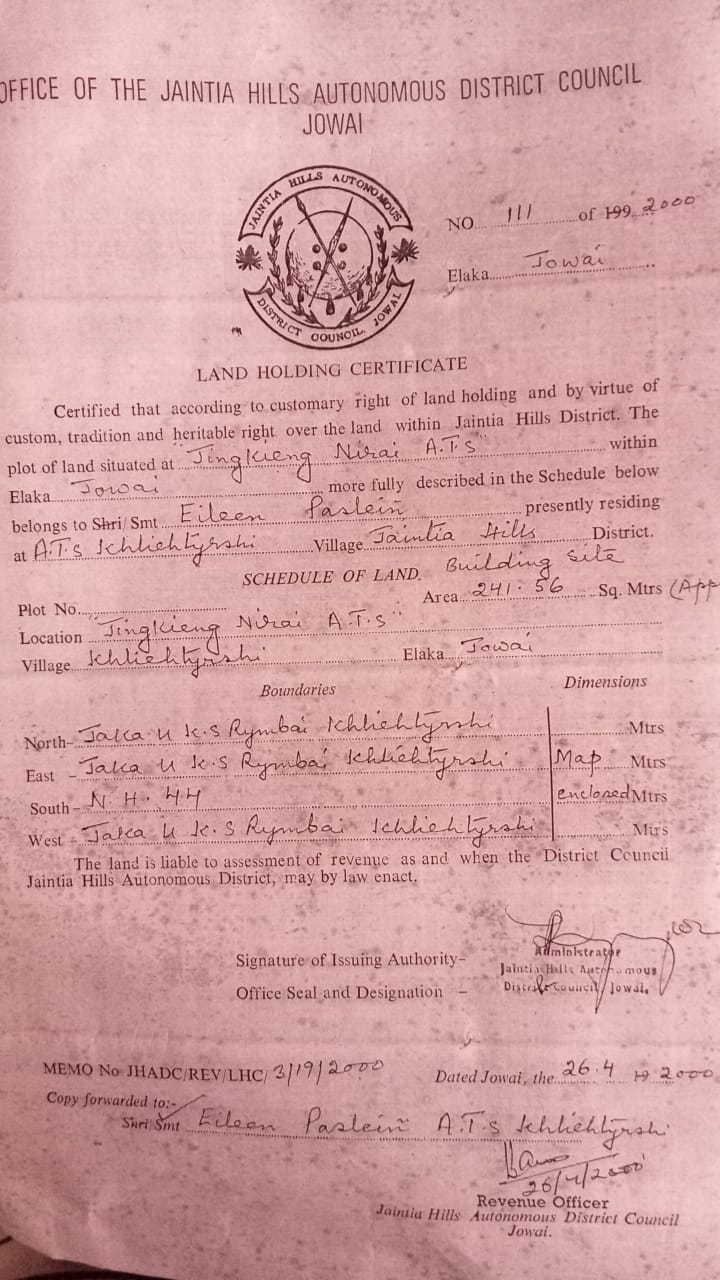 OFFICE OF THE JAINTIA HILLS AUTONOMOUS DISTRICT COUNCIL
JOWAI
JAINTIA HILLS AUTONOMOUS
DISTRICT COUNCIL, JOWAI
NO 111 of 199 2000
Elaka Jowai
LAND HOLDING CERTIFICATE
Certified that according to customary right of land holding and by virtue of
custom, tradition and heritable right over the land within Jaintia Hills District. The
plot of land situated at "Jingkieng Nirai A.T.S" within
Elaka Jowai more fully described in the Schedule below
belongs to Shri/Smt Eileen Paslein presently residing
at A.T.S Khliehtyrshi Village Jaintia Hills District.
SCHEDULE OF LAND. Building Site
Plot No. Area 241.56 Sq. Mtrs (App
Location "Jingkieng Nirai A.T.S"
Village Khliehtyrshi Elaka Jowai
Boundaries Dimensions
North- Jaka U K.S Rymbai Khliehtyrshi Mtrs
East - Jaka U K.S Rymbai Khliehtyrshi Map Mtrs
South - N.H. 44 enclosed Mtrs
West - Jaka U K.S Rymbai Khliehtyrshi Mtrs
The land is liable to assessment of revenue as and when the District Council
Jaintia Hills Autonomous District, may by law enact.
Signature of Issuing Authority-
Administrator
Jaintia Hills Autonomous
District Council, Jowai.
Office Seal and Designation -
MEMO No JHADC/REV/LHC/ 3/19/2000 Dated Jowai, the 26.4 19 2000
Copy forwarded to:-
Shri/Smt Eileen Paslein A.T.S Khliehtyrshi
26/4/2000
Revenue Officer
Jaintia Hills Autonomous District Council
Jowai.